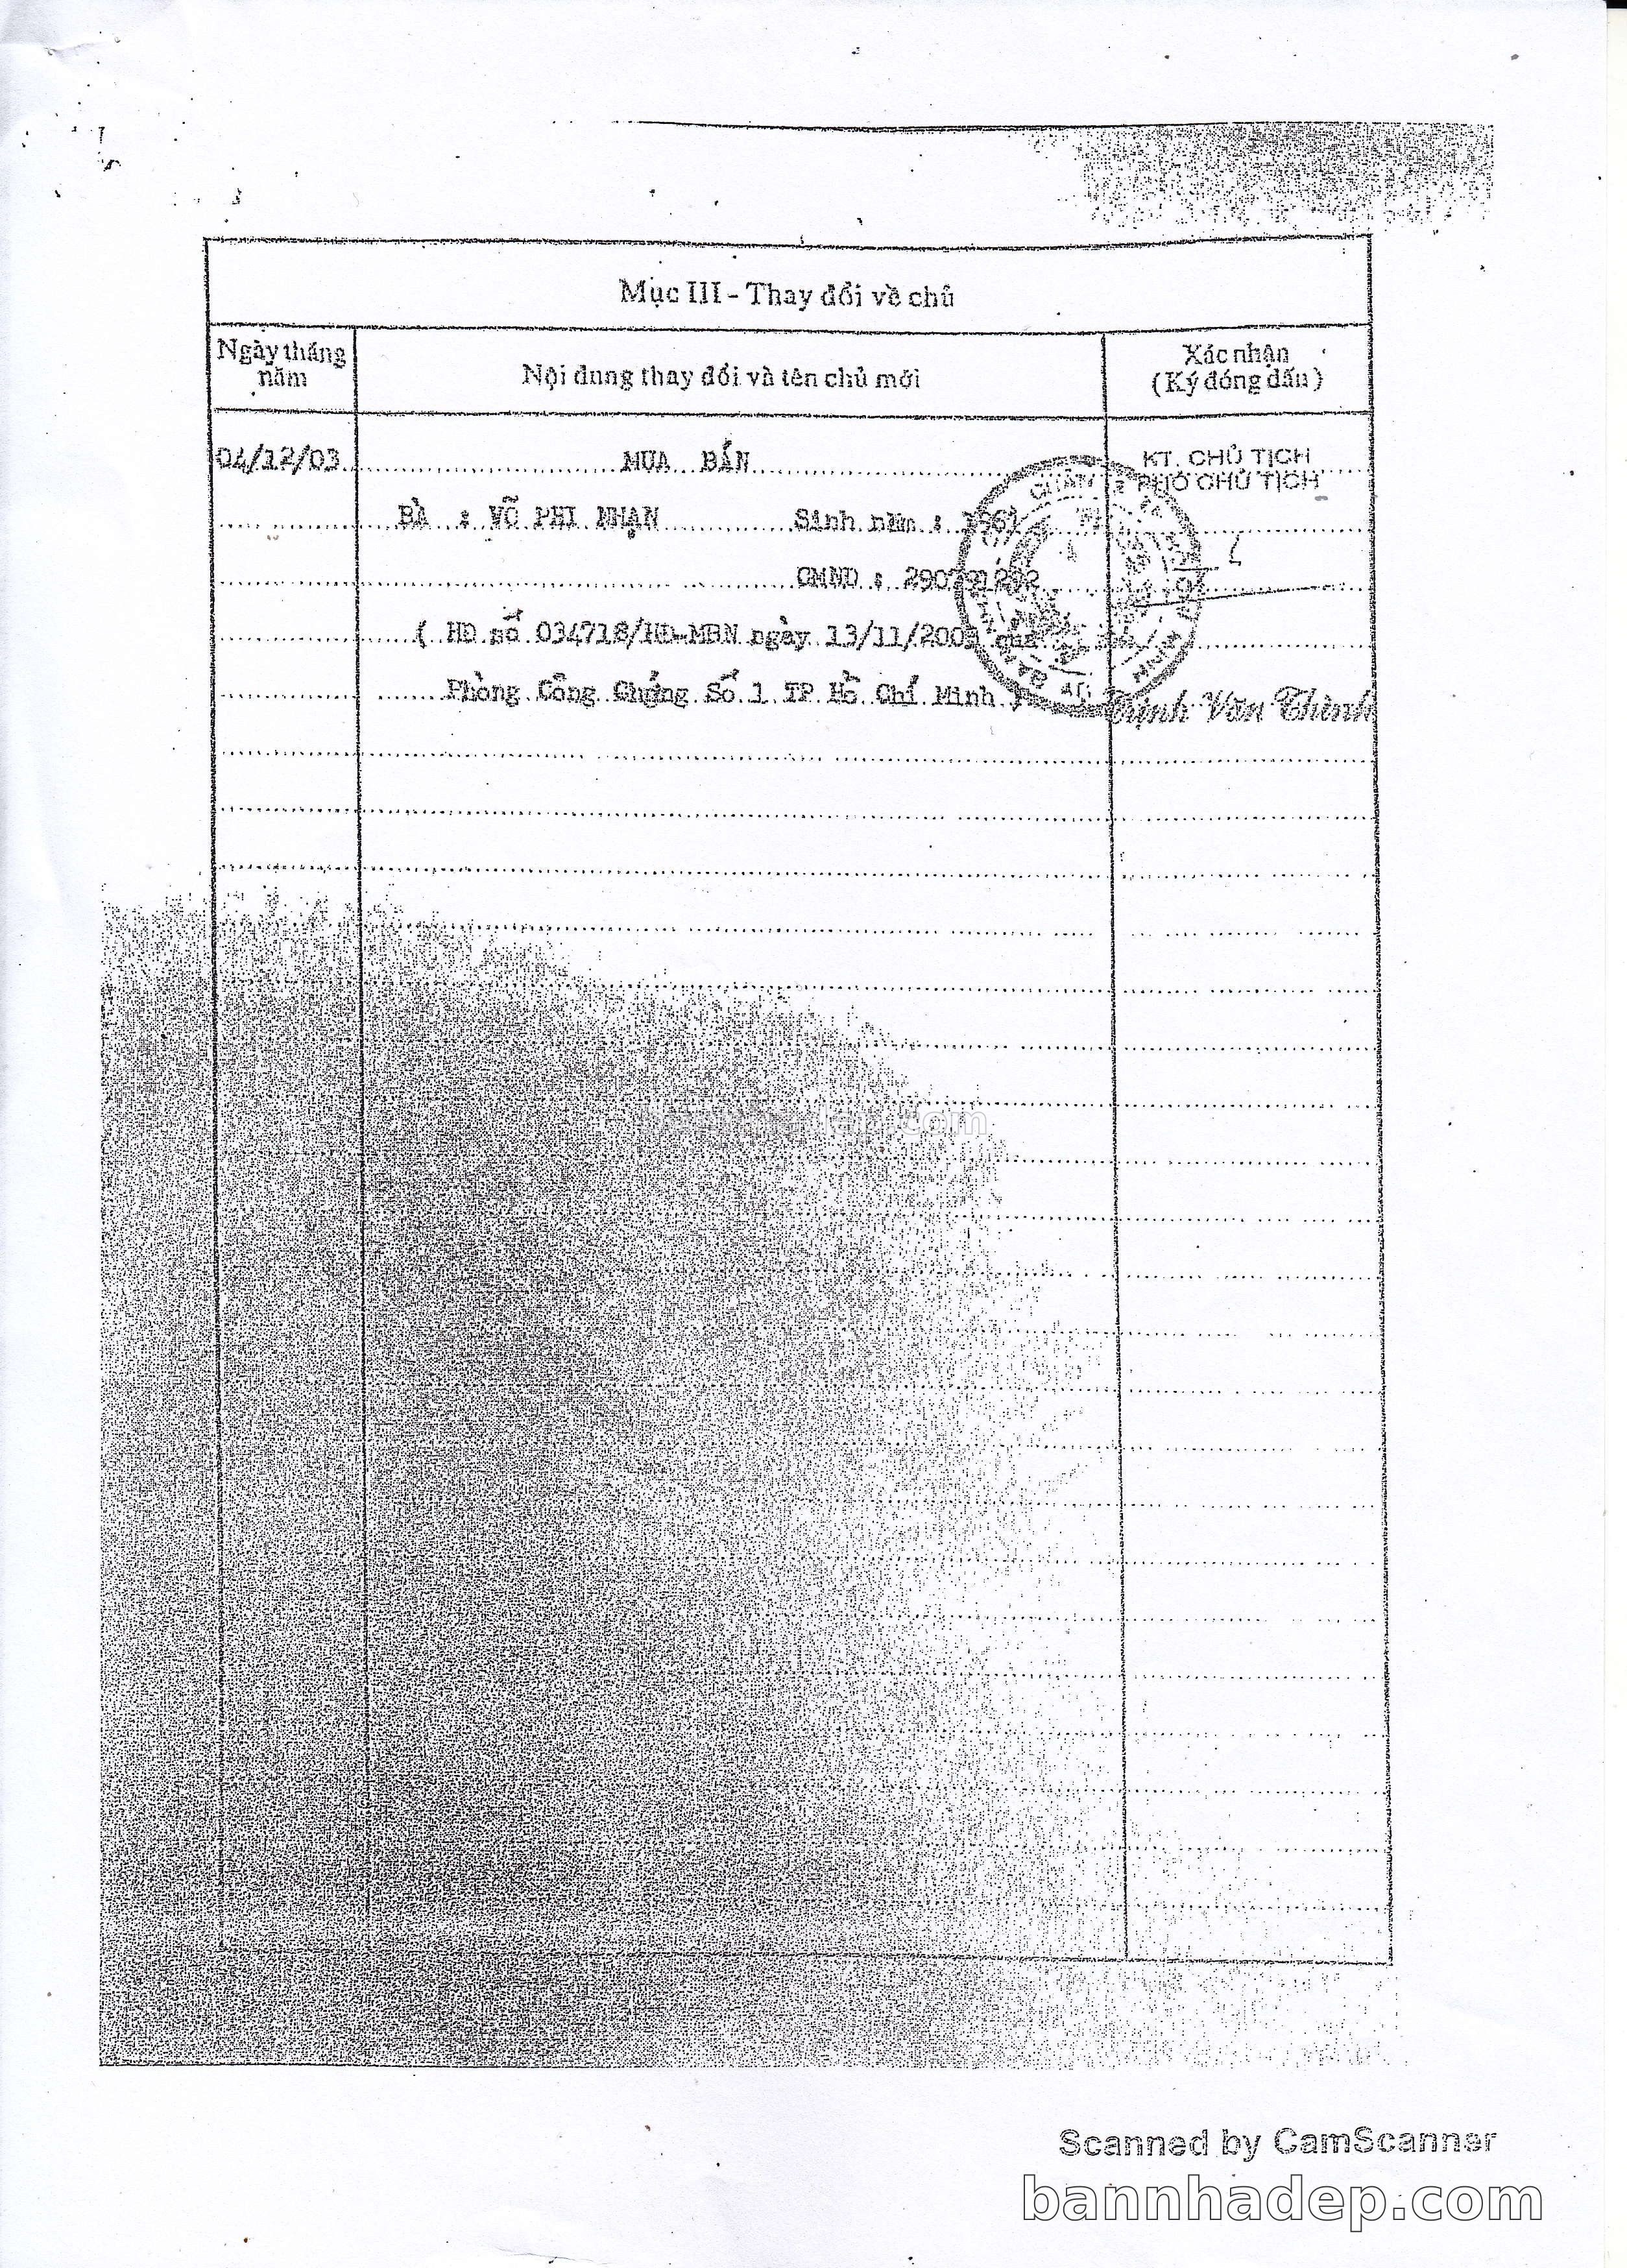 Mục III - Thay đổi về chủ
Ngày tháng năm
Nội dung thay đổi và tên chủ mới
Xác nhận
(Ký đóng dấu)
04/12/03
MUA BÁN
KT. CHỦ TỊCH
PHÓ CHỦ TỊCH
BÀ : VÕ PHI NHẠN Sinh năm : 1961
CMND :
( HĐ số 034718/HĐ-MBN ngày 13/11/2003 của
Phòng Công Chứng Số 1 TP Hồ Chí Minh )
Trịnh Văn Thình
bannhadep.com
Scanned by CamScanner
bannhadep.com